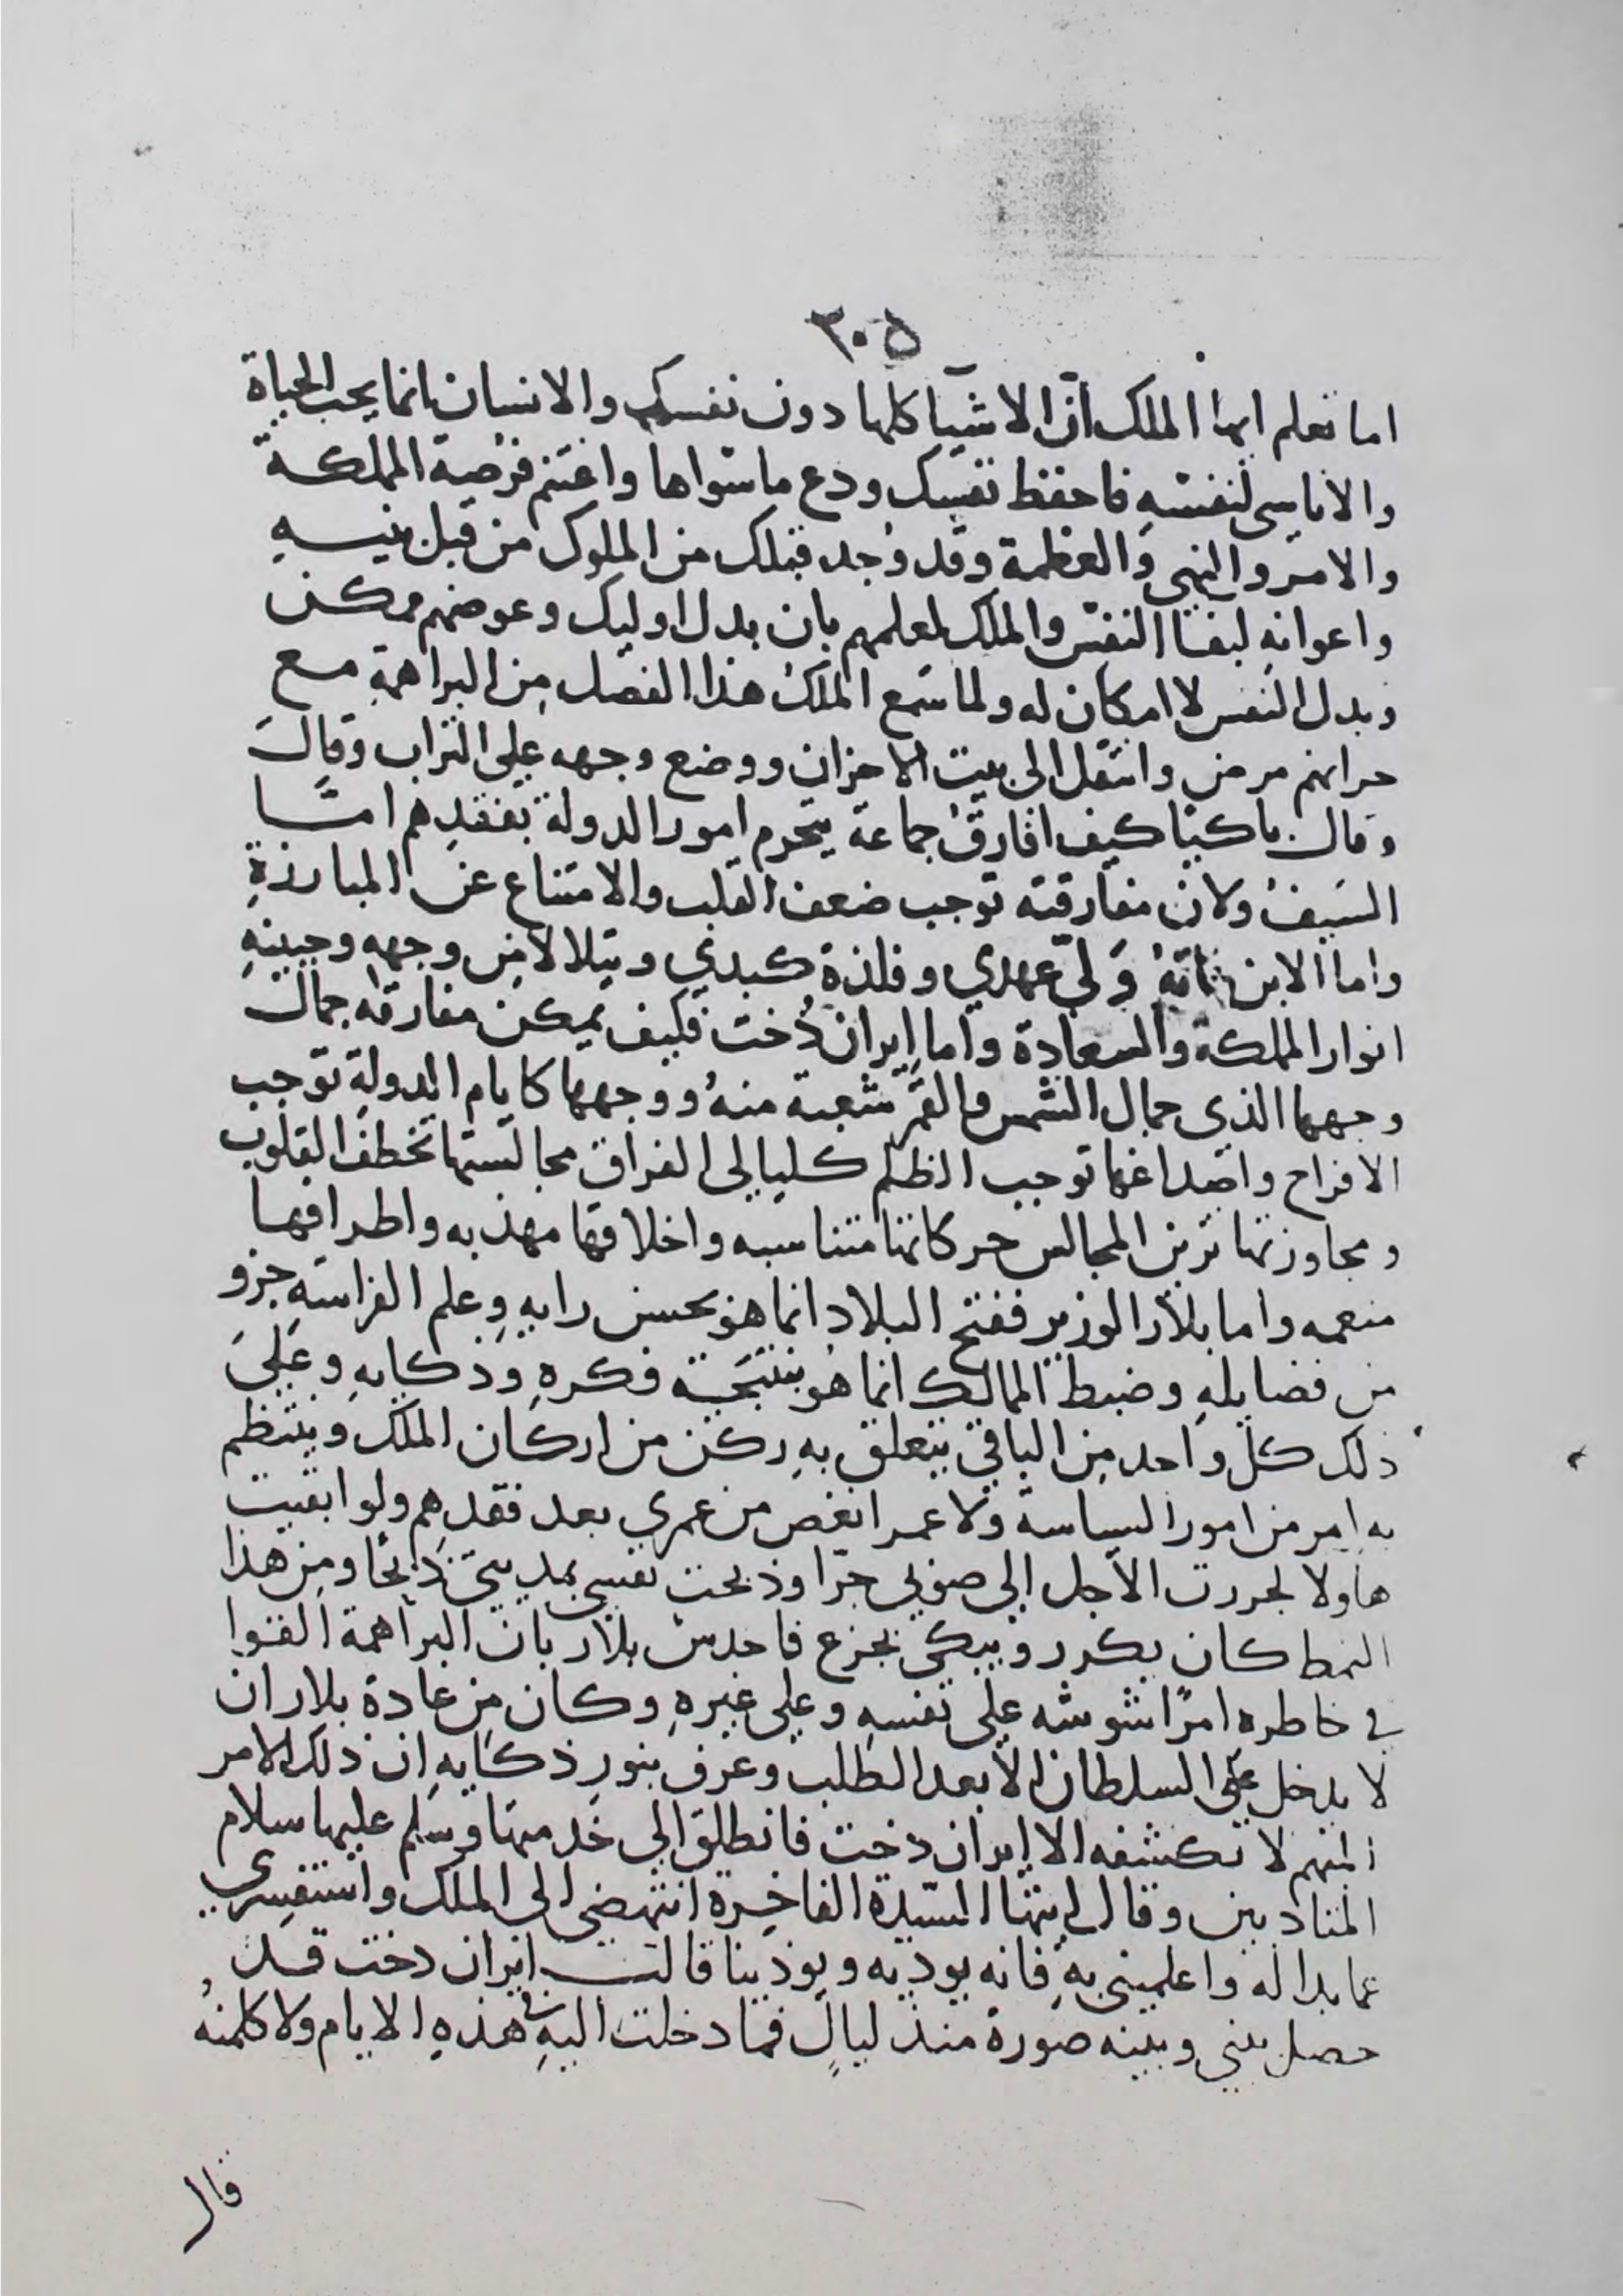 ٣٠٥
اما تعلم ايها الملك انّ الاشيا كلها دون نفسك والانسان انما يحب الحياة
والاناسى لنفسهِ فاحفظ نفسك ودع ما سواها واغتنم فرصة المملكة
والامر والنهى والعظمة وقد وُجد قبلك من الملوك من قبل بنيسهِ
واعوانهِ لبقا النفس والملك لعلمهم بان بدل اوليك وعوضهم ممكن
وبدل النفس لا امكان له ولما سَمع الملكُ هذا الفصل مِن البراهمةِ مع
حرانهم مرض وانتقل الى بيت الاحزان ووضع وجهه على التراب وقالَ
وقال باكيًا كيف افارقُ جماعة يتحرم امور الدولة بفقدِهم امّا
السَيفُ ولان مفارقته توجب ضعف القلب والامتناع عن المبارزةِ
واما الابن فانهُ وَليّ عهدي وفلذة كبدي ويتلالا من وجههِ وجبينهِ
انوار المملكة والسعادة واما إيران دُخت فكيف يمكن مفارقة جمال
وجهها الذي جمال الشمس والقمر شعبة منهُ ووجهها كايام الدولةِ توجب
الافراح واصداغها توجب الظلم كليالى الفراق مجالستها تخطف القلوب
ومجاورتها تزين المجالس حركاتها متناسبه واخلاقها مهذبه واطرافها
منعمه واما بلار الوزير ففتح البلاد انما هو بحسن رايهِ وعلم الفراسةِ جزو
من فضايلهِ وضبط الممالك انما هُو بنتيجَة فكرهِ وذكايهِ وعَلىَ
ذلك كل واحد مِن الباقي يتعلق بهِ ركن من اركان الملك وينتظم
به امر من امور السياسة ولا عمر انغص من عمري بعد فقدِهم ولو ابقيت
هاولا لجررت الأجل إلى صوبي جرّا وذبحت نفسي بمديتي ذَبحًا ومِن هذا
النمط كان يكرر ويبكي بجزع فاحدس بلار بان البراهمة القوا
في خاطرهِ امرًا شوشه على نفسهِ وعلى غيرهِ وكان مِن عادة بلار ان
لا يدخل على السلطان إلا بعد الطلب وعرف بنورِ ذكايهِ ان ذلك الامر
المبهم لا تكشفه الا إيران دخت فانطلق إلى خدمتها وسلم عليها سلام
المتادبين وقال ايتها السّيدة الفاخِرة انتهضى إلى الملك واستفسرى
عما بدا له واعلمينى بهِ فانه يوديه ويوذينا قالت إيران دخت قد
حصل بيني وبينه صورة منذ ليالٍ فما دخلت اليهِ في هذهِ الايام ولا كلمتهُ
قال